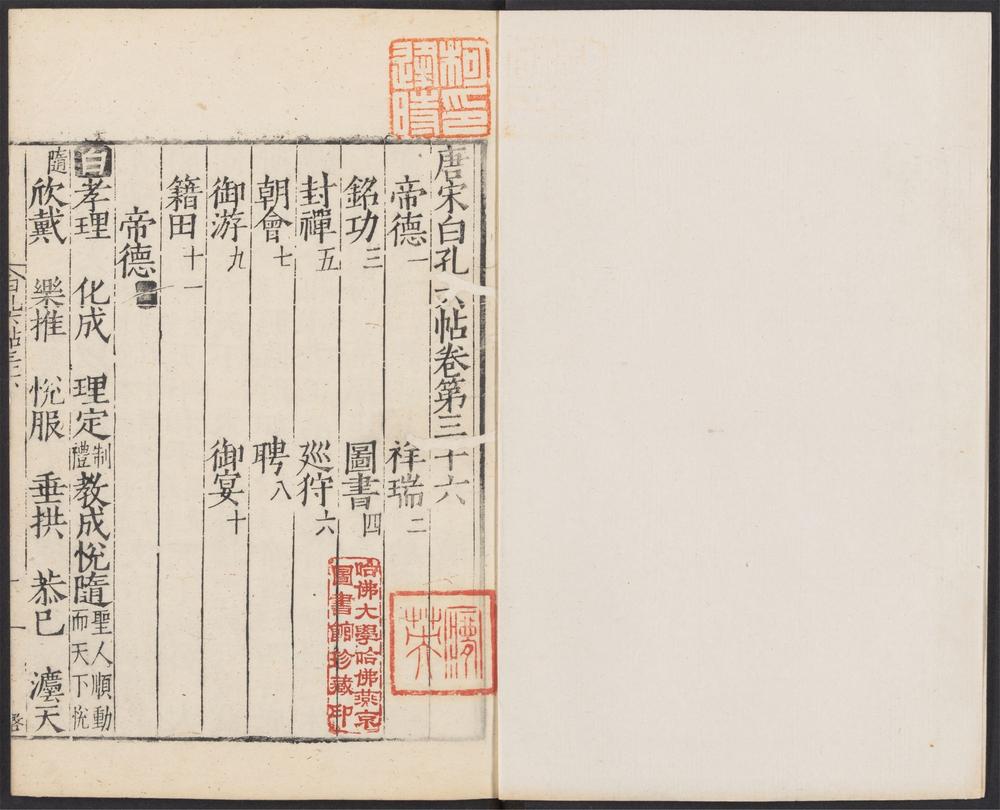 唐宋白孔六帖卷第三十六
帝德一 祥瑞二
銘功三 圖書四
封禪五 廵狩六
朝會七 聘八
御游九 御宴十
籍田十一
帝德一
白孝理 化成 理定制禮教成悅隨聖人順動而天下悅
隨欣戴 樂推 悅服 垂拱 恭已 灋天
哈佛大學哈佛燕京圖書館珍藏印